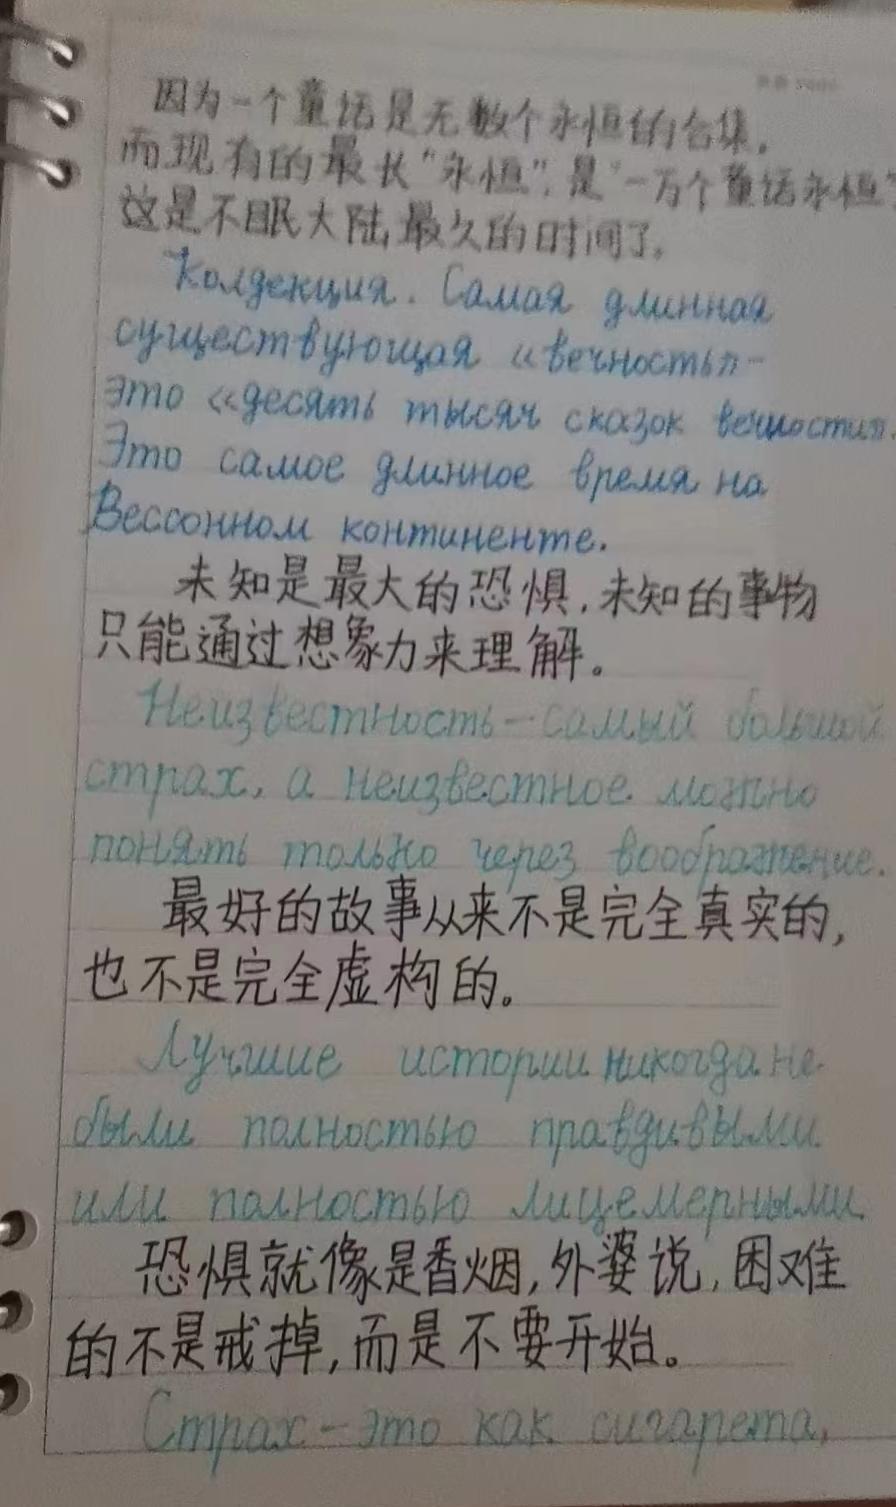 因为一个童话是无数个永恒的合集，
而现有的最长“永恒”，是“一万个童话永恒”
这是不眠大陆最久的时间了。
Колдекция. Самая длинная
существующая «вечность» -
это «десять тысяч сказок вечности».
Это самое длинное время на
Бессонном континенте.
未知是最大的恐惧，未知的事物
只能通过想象力来理解。
Неизвестность – самый большой
страх, а неизвестное можно
понять только через воображение.
最好的故事从来不是完全真实的，
也不是完全虚构的。
Лучшие истории никогда не
были полностью правдивыми
или полностью лицемерными.
恐惧就像是香烟，外婆说，困难
的不是戒掉，而是不要开始。
Страх – это как сигарета,